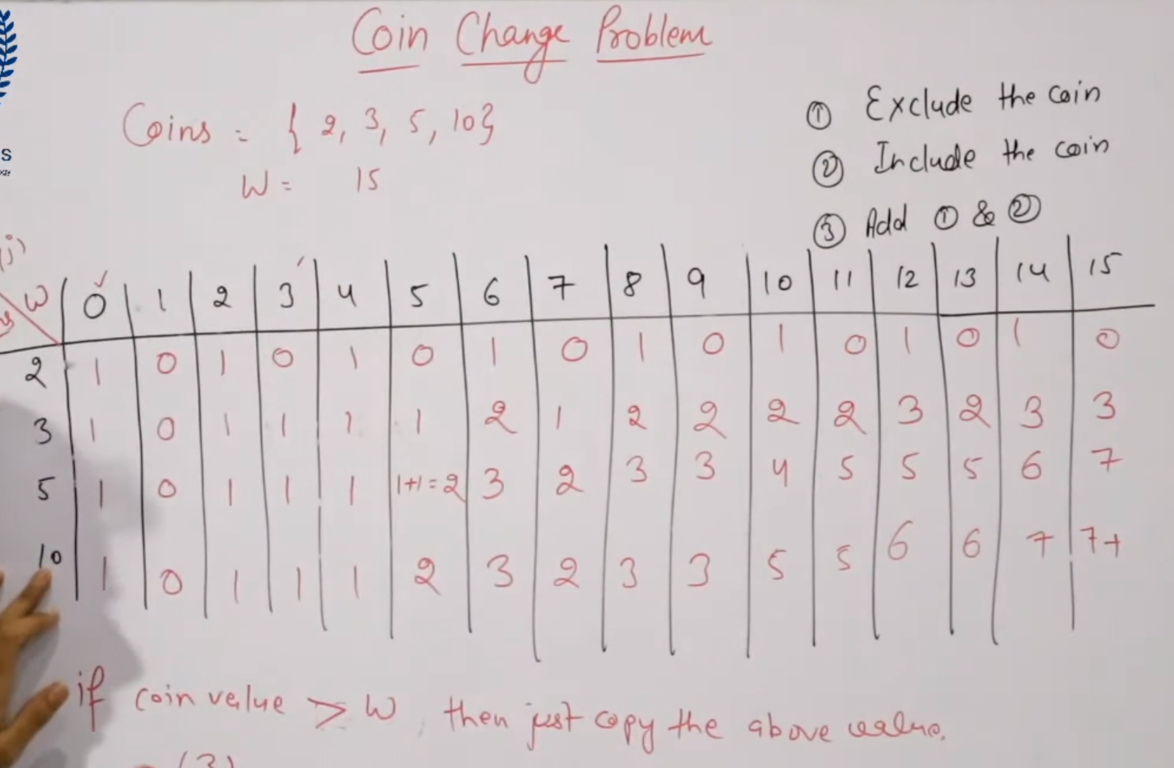 Coin Change Problem
Coins = { 2, 3, 5, 10}
W = 15
① Exclude the coin
② Include the coin
③ Add ① & ②
S
(j)
W 0 1 2 3 4 5 6 7 8 9 10 11 12 13 14 15
2 1 0 1 0 1 0 1 0 1 0 1 0 1 0 1 0
3 1 0 1 1 1 1 2 1 2 2 2 2 3 2 3 3
5 1 0 1 1 1 1+1=2 3 2 3 3 4 5 5 5 6 7
10 1 0 1 1 1 2 3 2 3 3 5 5 6 6 7 7+
if coin value > W, then just copy the above value.
(3)